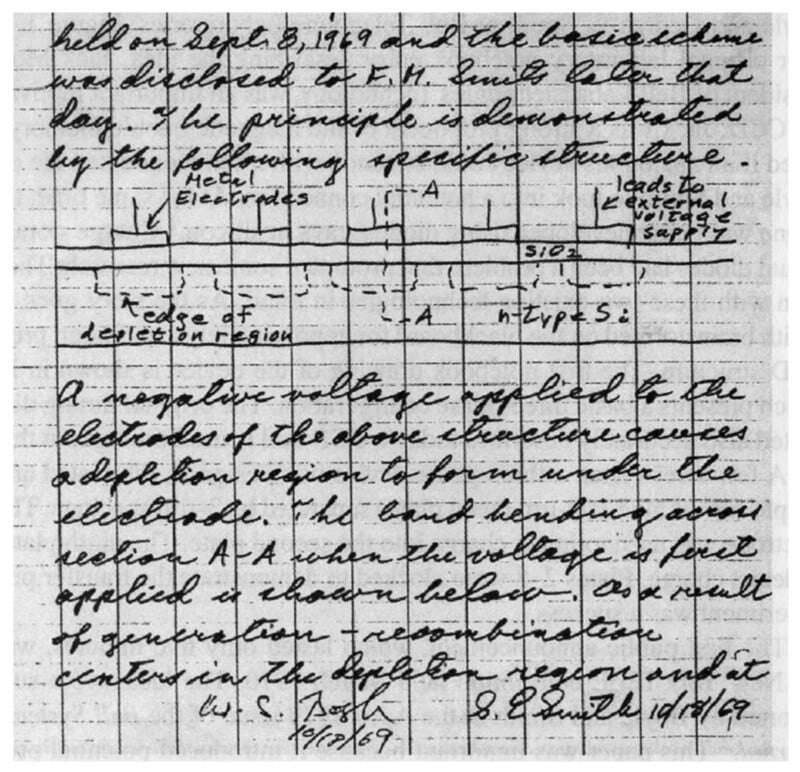 held on Sept. 8, 1969 and the basic scheme
was disclosed to F. M. Smits later that
day. The principle is demonstrated
by the following specific structure
Metal
Electrodes
A
leads to
external
voltage
supply
SiO2
edge of
depletion region
A
n-type Si
A negative voltage applied to the
electrodes of the above structure causes
a depletion region to form under the
electrode. The band bending across
section A-A when the voltage is first
applied is shown below. As a result
of generation-recombination
centers in the depletion region and at
W. S.
10/18/69
G E Smith 10/18/69